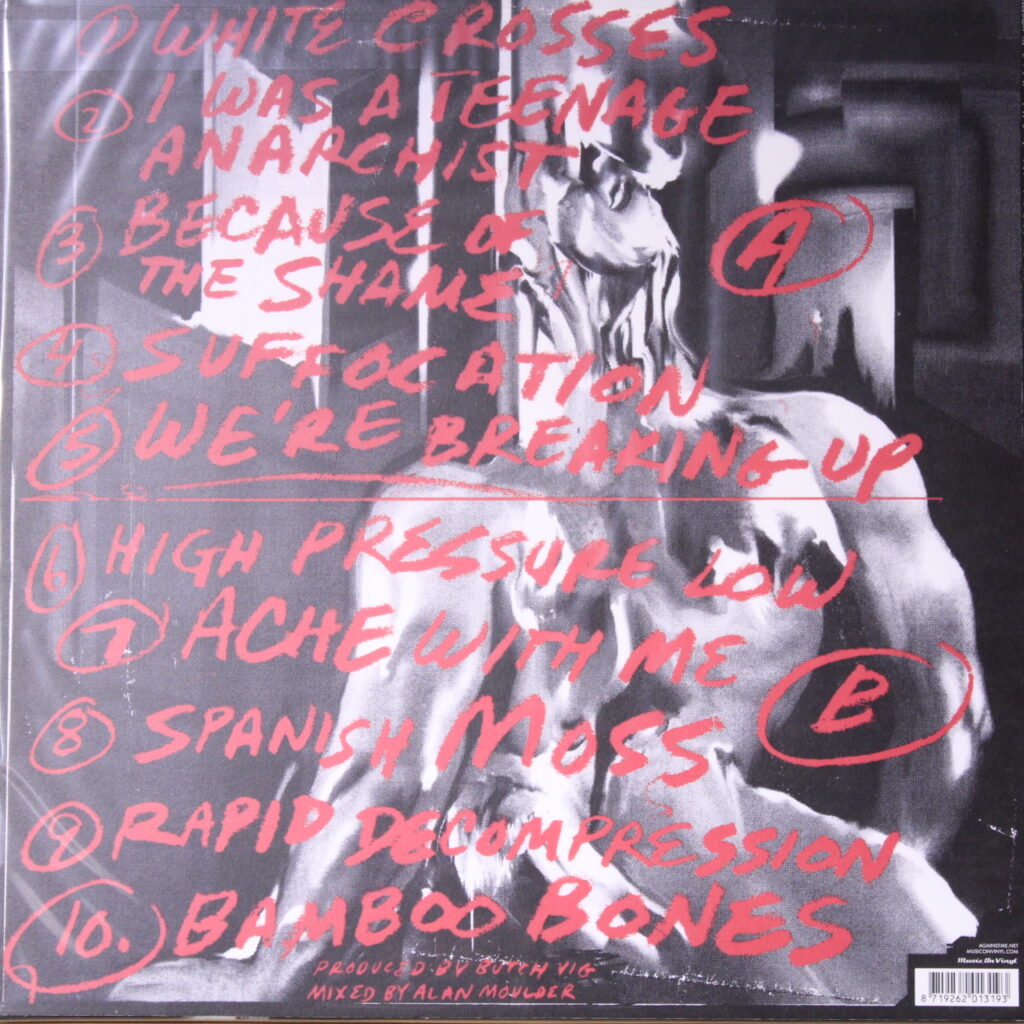 1 WHITE CROSSES
2 I WAS A TEENAGE
ANARCHIST
3 BECAUSE OF
THE SHAME
A
4 SUFFOCATION
5 WE'RE BREAKING UP
6 HIGH PRESSURE LOW
7 ACHE WITH ME
B
8 SPANISH MOSS
9 RAPID DECOMPRESSION
10. BAMBOO BONES
PRODUCED BY BUTCH VIG
MIXED BY ALAN MOULDER
AGAINSTME.NET
MUSICONVINYL.COM
Music On Vinyl
8 719262 013193